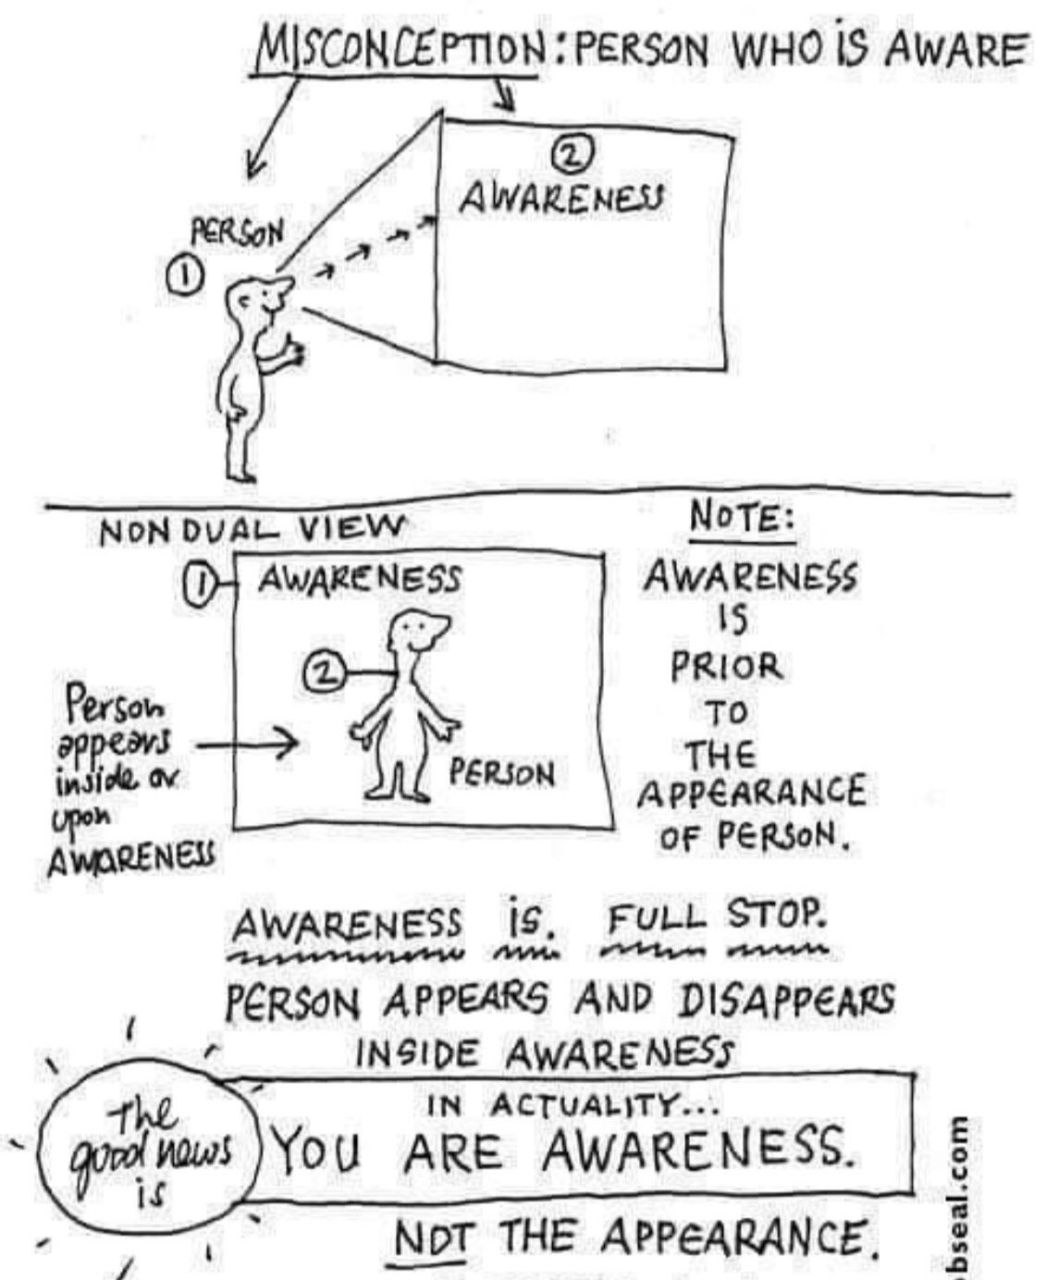 MISCONCEPTION: PERSON WHO IS AWARE
②
AWARENESS
PERSON
①
NON DUAL VIEW
① AWARENESS
②
PERSON
Person
appears
inside or
upon
AWARENESS
NOTE:
AWARENESS
IS
PRIOR
TO
THE
APPEARANCE
OF PERSON.
AWARENESS IS. FULL STOP.
PERSON APPEARS AND DISAPPEARS
INSIDE AWARENESS
The
good news
is
IN ACTUALITY...
YOU ARE AWARENESS.
NOT THE APPEARANCE.
bseal.com